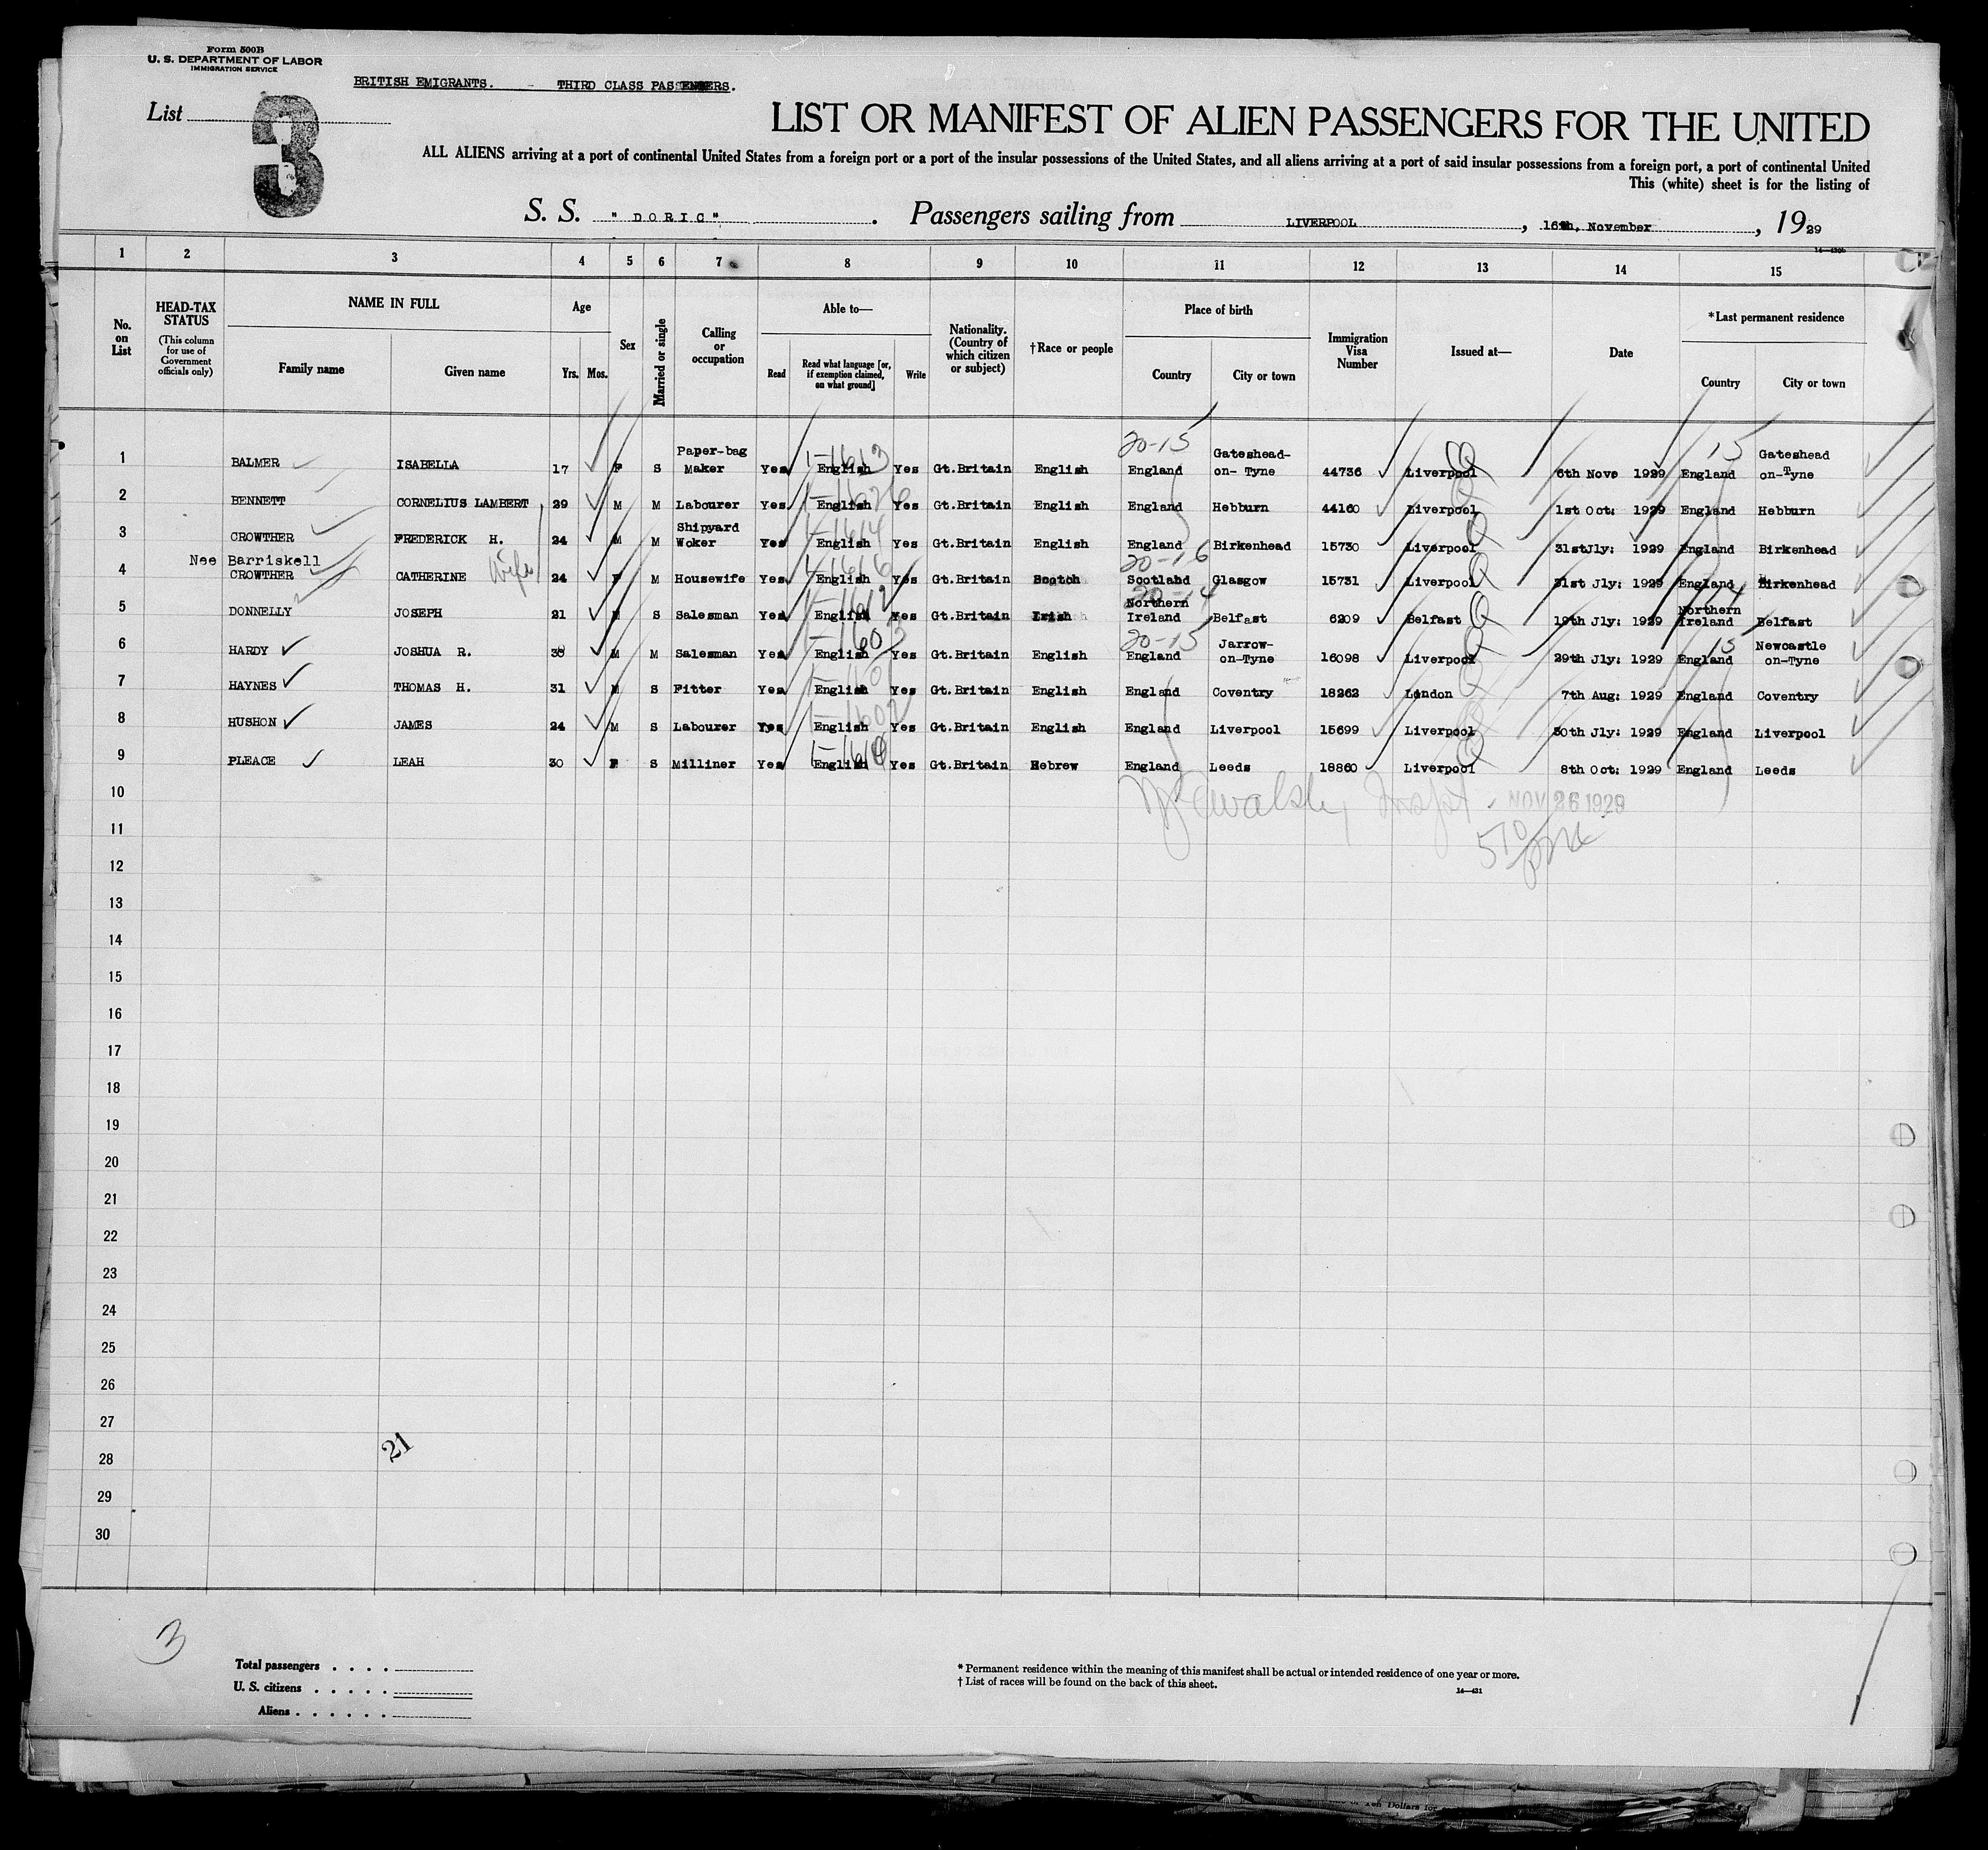 Form 500B
U. S. DEPARTMENT OF LABOR
IMMIGRATION SERVICE
BRITISH EMIGRANTS. - THIRD CLASS PASSENGERS.
List 3
LIST OR MANIFEST OF ALIEN PASSENGERS FOR THE UNITED
ALL ALIENS arriving at a port of continental United States from a foreign port or a port of the insular possessions of the United States, and all aliens arriving at a port of said insular possessions from a foreign port, a port of continental United
This (white) sheet is for the listing of
S. S. "DORIC". Passengers sailing from LIVERPOOL, 16th. November, 1929
14—430b
1 2 3 4 5 6 7 8 9 10 11 12 13 14 15
No. on List
HEAD-TAX STATUS
(This column for use of Government officials only)
NAME IN FULL
Family name Given name
Age
Yrs. Mos.
Sex
Married or single
Calling or occupation
Able to—
Read
Read what language [or, if exemption claimed, on what ground]
Write
Nationality. (Country of which citizen or subject)
†Race or people
Place of birth
Country City or town
Immigration Visa Number
Issued at—
Date
*Last permanent residence
Country City or town
20-15 15
Paper-bag Gateshead- Gateshead
1 BALMER ISABELLA 17 F S Maker Yes English Yes Gt.Britain English England on- Tyne 44736 Liverpool 6th Nov. 1929 England on-Tyne
2 BENNETT CORNELIUS LAMBERT 29 M M Labourer Yes English Yes Gt.Britain English England Hebburn 44160 Liverpool 1st Oct: 1929 England Hebburn
Shipyard
3 CROWTHER FREDERICK H. 24 M M Woker Yes English Yes Gt.Britain English England Birkenhead 15730 Liverpool 31stJly: 1929 England Birkenhead
Nee Barriskell 20-16
4 CROWTHER CATHERINE Wife 24 F M Housewife Yes English Yes Gt.Britain Scotch Scotland Glasgow 15731 Liverpool 31st Jly: 1929 England Birkenhead
20-14
Northern Northern
5 DONNELLY JOSEPH 21 M S Salesman Yes English Yes Gt.Britain Irish Ireland Belfast 6209 Belfast 19th Jly: 1929 Ireland Belfast
20-15 Jarrow- 15 Newcastle
6 HARDY JOSHUA R. M M Salesman Yes English Yes Gt.Britain English England on-Tyne 16098 Liverpool 29th Jly: 1929 England on-Tyne
7 HAYNES THOMAS H. 31 M S Fitter Yes English Yes Gt.Britain English England Coventry 18262 London 7th Aug: 1929 England Coventry
8 HUSHON JAMES 24 M S Labourer Yes English Yes Gt.Britain English England Liverpool 15699 Liverpool 30th Jly: 1929 England Liverpool
9 PLEACE LEAH 30 F S Milliner Yes English Yes Gt.Britain Hebrew England Leeds 18860 Liverpool 8th Oct: 1929 England Leeds
10 NOV 26 1929
11
12
13
14
15
16
17
18
19
20
21
22
23
24
25
26
27
21
28
29
30
3
Total passengers
U. S. citizens
Aliens
* Permanent residence within the meaning of this manifest shall be actual or intended residence of one year or more.
† List of races will be found on the back of this sheet.
14—431